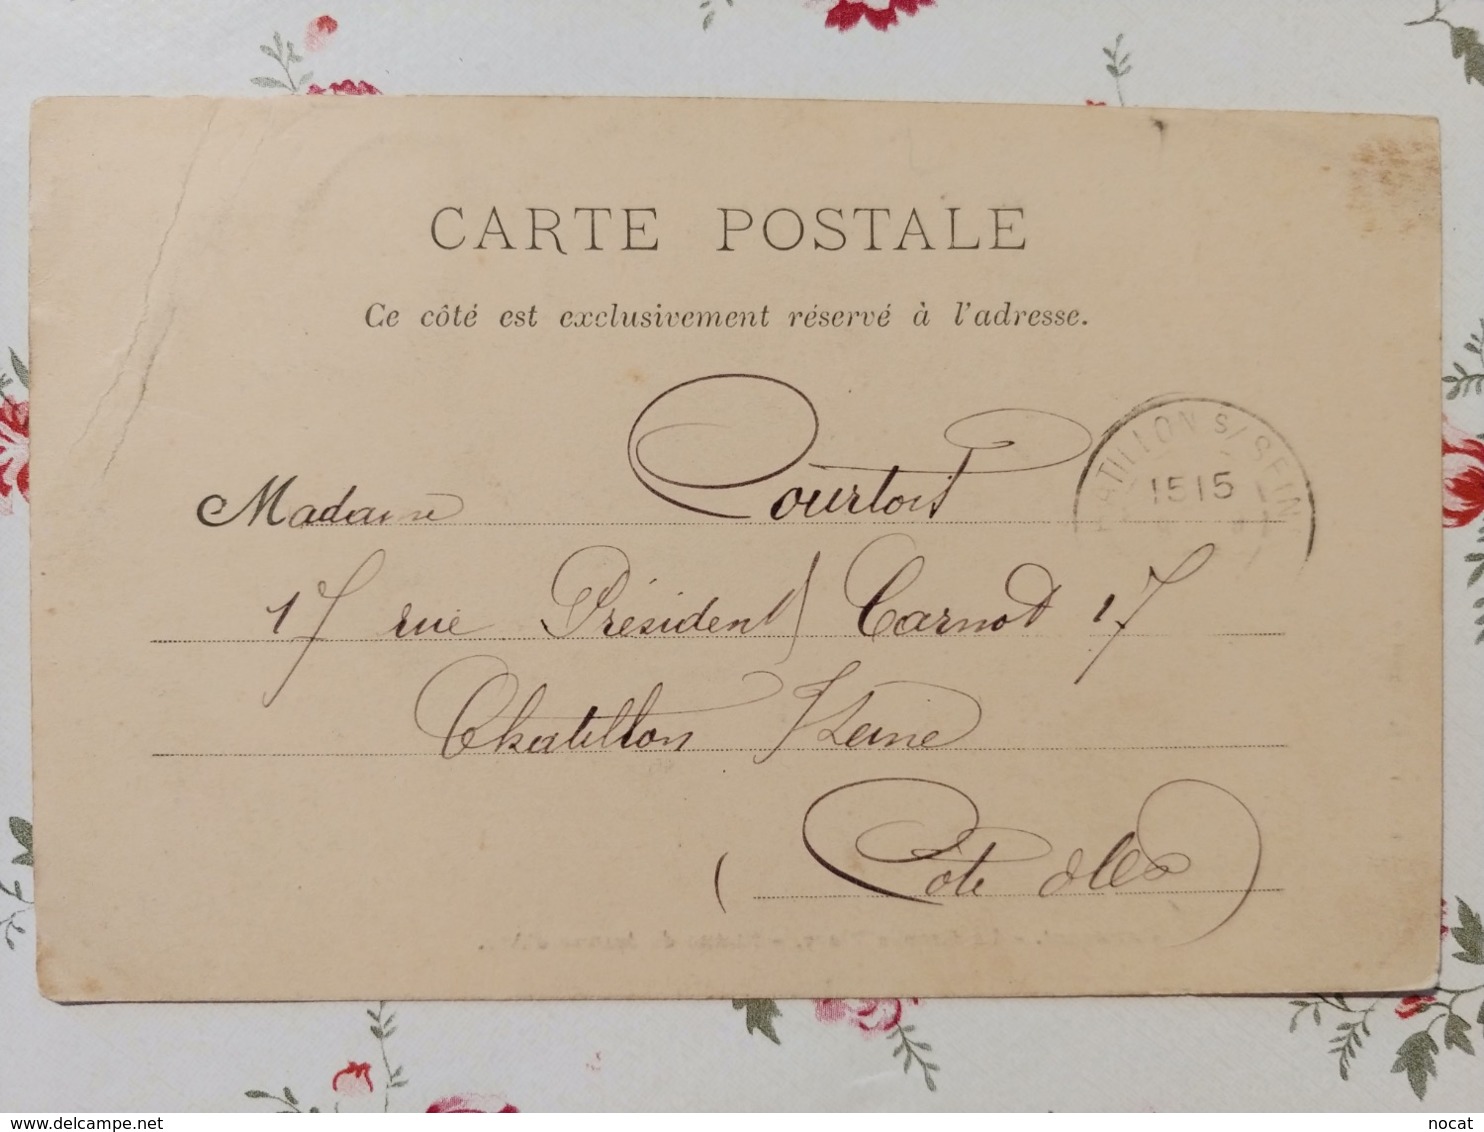 CARTE POSTALE
Ce côté est exclusivement réservé à l'adresse.
Madame Courtois
CHATILLON S/ SEIN
1515
17 rue Président Carnot 17
Chatillon s/Seine
(Côte d'Or)
www.delcampe.net
nocat